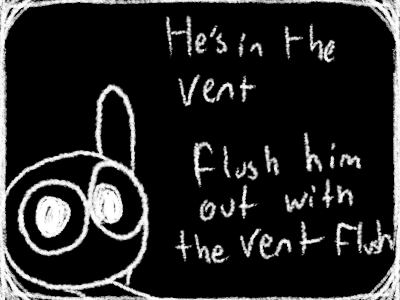 He's in the
vent
Flush him
out with
the vent flush